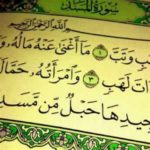 سُورَةُ المَسَد
اللَّهِ الرَّحْمَٰنِ الرَّحِيمِ
بٍ وَتَبَّ ۝١ مَا أَغْنَىٰ عَنْهُ مَالُهُ وَ
اتَ لَهَبٍ ۝٣ وَامْرَأَتُهُ حَمَّالَ
جِيدِهَا حَبْلٌ مِّن مَّسَدٍ